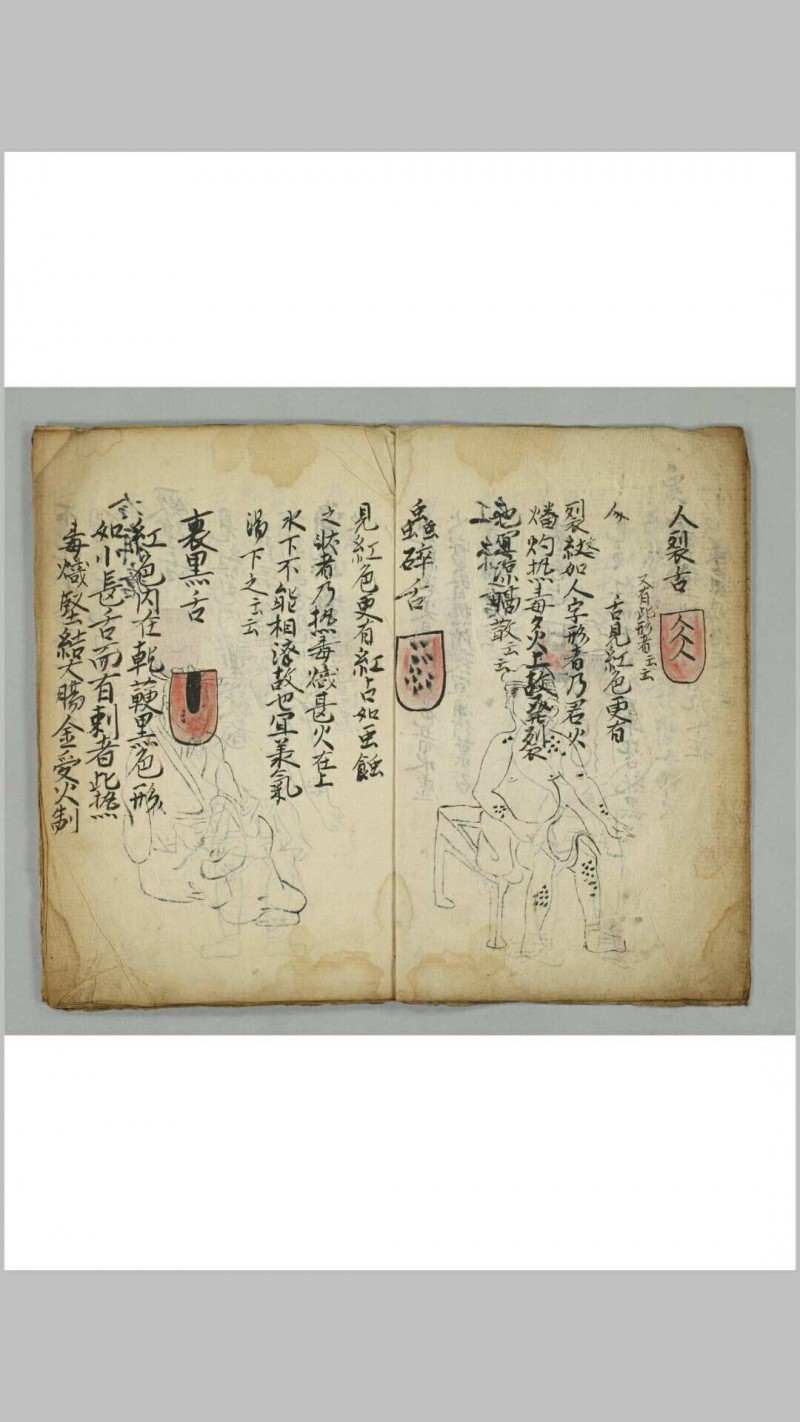 人裂舌
又有此形者云云
舌見紅色更有
人
裂紋如人字形者乃君火
燔灼熱毒炎上故發裂
也宜凉膈散云云
蟲碎舌
見紅色更有紅占如虫蝕
之状者乃热毒熾甚火在上
水下不能相濟故也宜承氣
湯下之云云
裏黒舌
紅色内在乾䩕黒色形
如小長舌而有刺者此热
毒熾堅結大腸金受火制